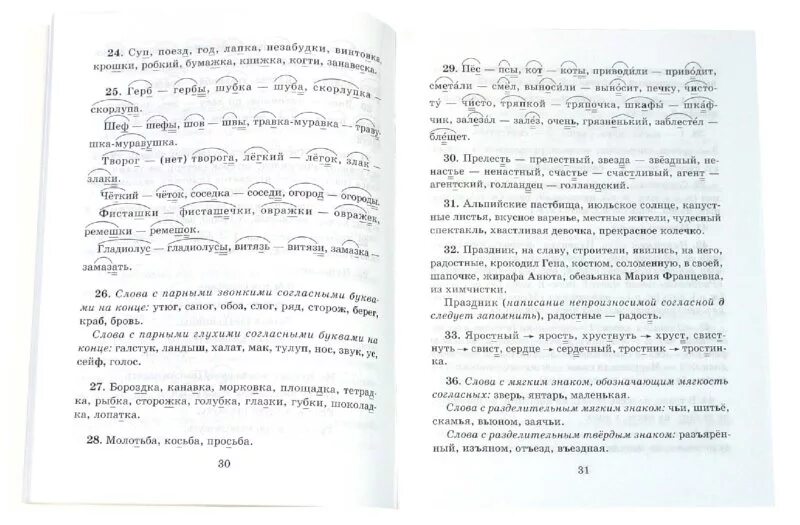 24. Суп, поезд, год, лапка, незабудки, винтовка,
крошки, робкий, бумажка, книжка, когти, занавеска.
25. Герб — гербы, шубка — шуба, скорлупка —
скорлупа.
Шеф — шефы, шов — швы, травка-муравка — траву-
шка-муравушка.
Творог — (нет) творога, лёгкий — лёгок, злак —
злаки.
Чёткий — чёток, соседка — соседи, огород — огороды.
Фисташки — фисташечки, овражки — овражек,
ремешки — ремешок.
Гладиолус — гладиолусы, витязь — витязи, замазка —
замазать.
26. Слова с парными звонкими согласными буква-
ми на конце: утюг, сапог, обоз, слог, ряд, сторож, берег,
краб, бровь.
Слова с парными глухими согласными буквами на
конце: галстук, ландыш, халат, мак, тулуп, нос, звук, ус,
сейф, голос.
27. Бороздка, канавка, морковка, площадка, тетрад-
ка, рыбка, сторожка, голубка, глазки, губки, шоколад-
ка, лопатка.
28. Молотьба, косьба, просьба.
30
29. Пёс — псы, кот — коты, приводи́ли — приво́дит,
смета́ли — смёл, выноси́ли — выно́сит, печку, чисто-
ту́ — чи́сто, тря́пкой — тря́почка, шкафы́ — шка́ф-
чик, залеза́л — зале́з, о́чень, грязне́нький, заблесте́л —
бле́щет.
30. Прелесть — прелестный, звезда — звёздный, не-
настье — ненастный, счастье — счастливый, агент —
агентский, голландец — голландский.
31. Альпийские пастбища, июльское солнце, капуст-
ные листья, вкусное варенье, местные жители, чудесный
спектакль, хвастливая девочка, прекрасное колечко.
32. Праздник, на славу, строители, явились, на него,
радостные, крокодил Гена, костюм, соломенную, в своей,
шапочке, жирафа Анюта, обезьянка Мария Францевна,
из химчистки.
Праздник (написание непроизносимой согласной д
следует запомнить), радостные — радость.
33. Яростный → ярость, хрустнуть → хруст, свист-
нуть → свист, сердце → сердечный, тростник → тростин-
ка.
36. Слова с мягким знаком, обозначающим мягкость
согласных: зверь, янтарь, маленькая.
Слова с разделительным мягким знаком: чьи, шитьё,
скамья, вьюном, заячьи.
Слова с разделительным твёрдым знаком: разъярён-
ный, изъяном, отъезд, въездная.
31